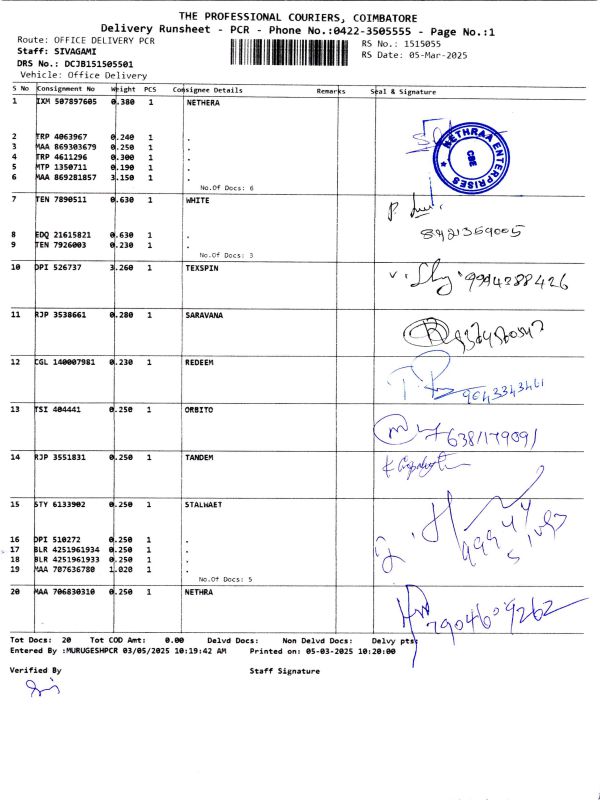 THE PROFESSIONAL COURIERS, COIMBATORE
Delivery Runsheet - PCR - Phone No.:0422-3505555 - Page No.:1
Route: OFFICE DELIVERY PCR RS No.: 1515055
Staff: SIVAGAMI RS Date: 05-Mar-2025
DRS No.: DCJB151505501
Vehicle: Office Delivery
S No Consignment No Weight PCS Consignee Details Remarks Seal & Signature
1 IXM 507897605 0.380 1 NETHERA
2 TRP 4063967 0.240 1 .
3 MAA 869303679 0.250 1 .
4 TRP 4611296 0.300 1 .
5 MTP 1350711 0.190 1 .
6 MAA 869281857 3.150 1 .
NETHRAA ENTERPRISES
CBE
No.Of Docs: 6
7 TEN 7890511 0.630 1 WHITE
8 EDQ 21615821 0.630 1 .
8921359005
9 TEN 7926003 0.230 1 .
No.Of Docs: 3
10 DPI 526737 3.260 1 TEXSPIN
9994288426
11 RJP 3538661 0.280 1 SARAVANA
12 CGL 140007981 0.230 1 REDEEM
9043343461
13 TSI 404441 0.250 1 ORBITO
6381179091
14 RJP 3551831 0.250 1 TANDEM
15 STY 6133902 0.250 1 STALWAET
16 DPI 510272 0.250 1 .
17 BLR 4251961934 0.250 1 .
18 BLR 4251961933 0.250 1 .
19 MAA 707636780 1.020 1 .
No.Of Docs: 5
20 MAA 706830310 0.250 1 NETHRA
7904609262
Tot Docs: 20 Tot COD Amt: 0.00 Delvd Docs: Non Delvd Docs: Delvy pts:
Entered By :MURUGESHPCR 03/05/2025 10:19:42 AM Printed on: 05-03-2025 10:20:00
Verified By Staff Signature